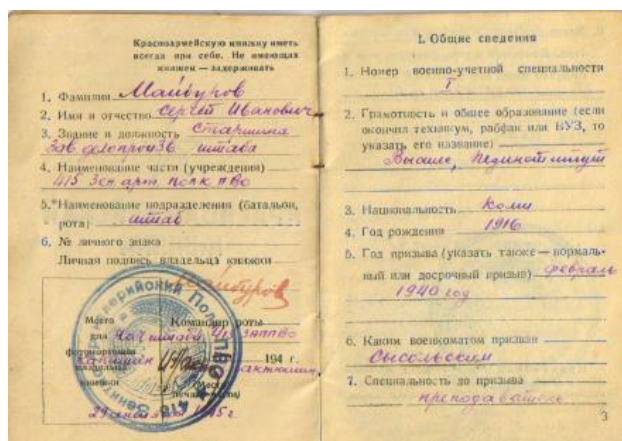 Красноармейскую книжку иметь
всегда при себе. Не имеющих
книжек — задерживать
1. Фамилия Майбуров
2. Имя и отчество Сергей Иванович
3. Звание и должность Старшина
Зав делопроизв штаба
4. Наименование части (учреждения)
415 Зен. арт. полк ПВО
5. Наименование подразделения (батальон,
рота) штаб
6. № личного знака
Личная подпись владельца книжки
Майбуров
Место
для
фотокарточки
владельца
книжки
Командир роты
Нач штаба 415 ЗАППВО
Капитан
194 г.
Место
печати
1945 г
I. Общие сведения
1. Номер военно-учетной специальности
1
2. Грамотность и общее образование (если
окончил техникум, рабфак или ВУЗ, то
указать его название)
Высшее, Пединститут
3. Национальность Коми
4. Год рождения 1916
5. Год призыва (указать также — нормаль-
ный или досрочный призыв) февраль
1940 год
6. Каким военкоматом призван
Сысольским
7. Специальность до призыва
преподаватель
3